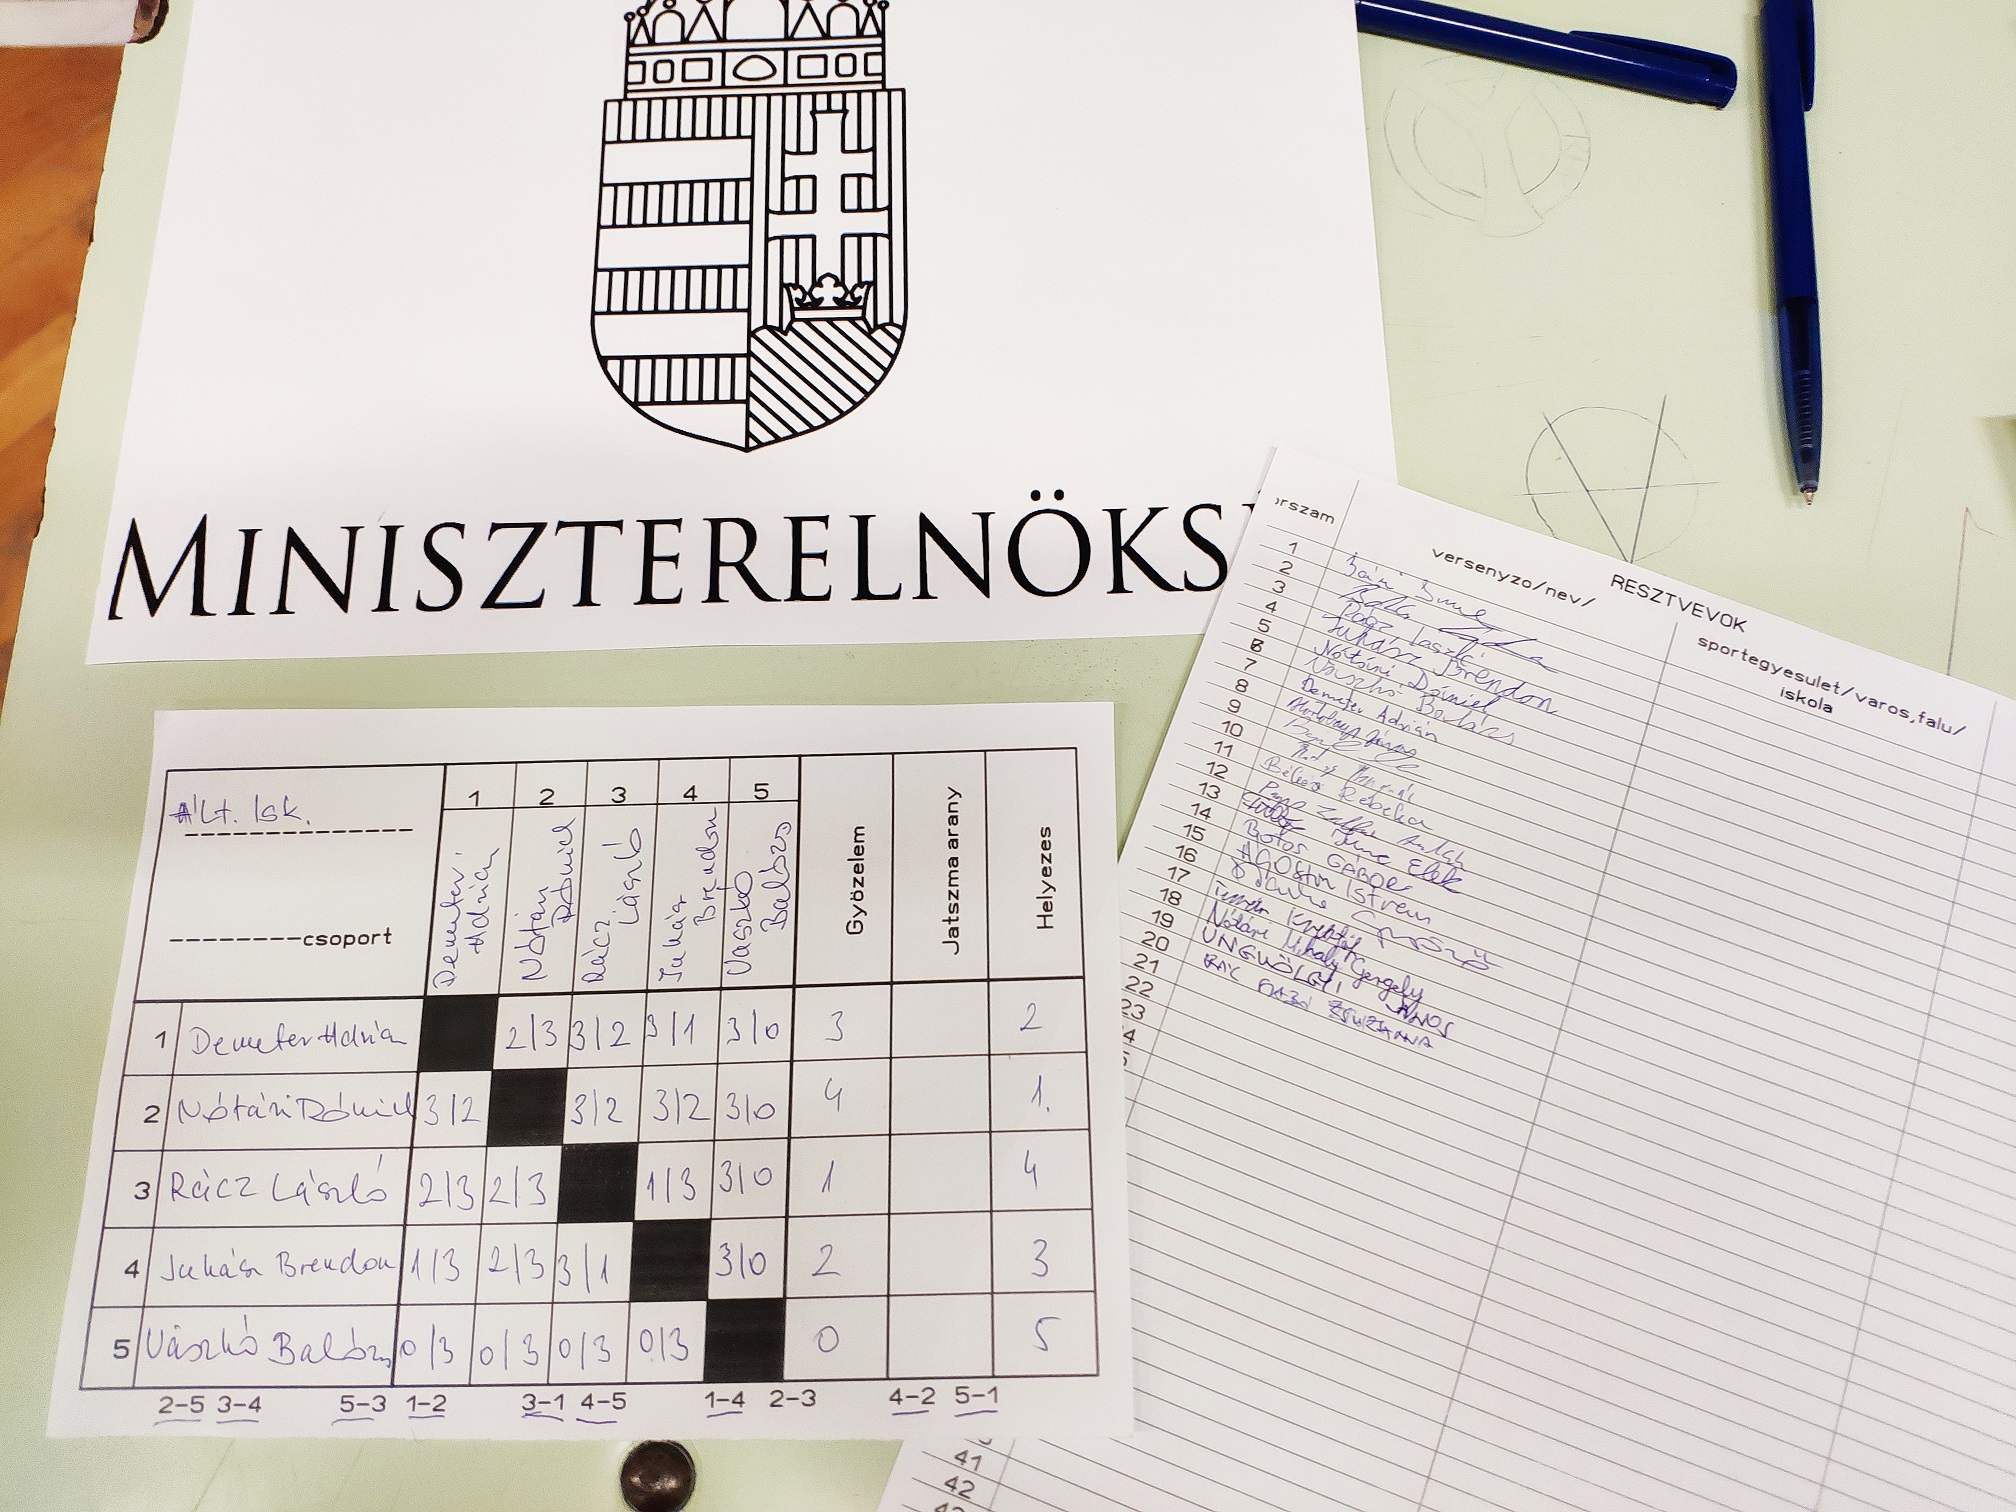 MINISZTERELNÖKS
Alt. Isk.
csoport
1 2 3 4 5
Demeter Adrian
Nótári Dániel
Rácz László
Juhász Brendon
Vaszkó Balázs
Gyözelem
Jatszma arany
Helyezes
1 Demeter Adrian 2/3 3/2 3/1 3/0 3 2
2 Nótári Dániel 3/2 3/2 3/2 3/0 4 1.
3 Rácz László 2/3 2/3 1/3 3/0 1 4
4 Juhász Brendon 1/3 2/3 3/1 3/0 2 3
5 Vászkó Balázs 0/3 0/3 0/3 0/3 0 5
2-5 3-4 5-3 1-2 3-1 4-5 1-4 2-3 4-2 5-1
RESZTVEVOK
rszam
versenyzo/nev/
sportegyesulet/varos,falu/
iskola
1
2
3 Rácz László
4 Juhász Brendon
5 Nótári Dániel
6 Balázs
7 Demeter Adrián
8
9
10
11 Rebeka
12
13 Elek
14 Botos GÁBOR
15 ÁGOSTON ISTVÁN
16
17
18 Nótári Mihály Gergely
19 UNGVÖLGYI JÁNOS
20 ZSUZSANNA
21
22
23
4
41
42